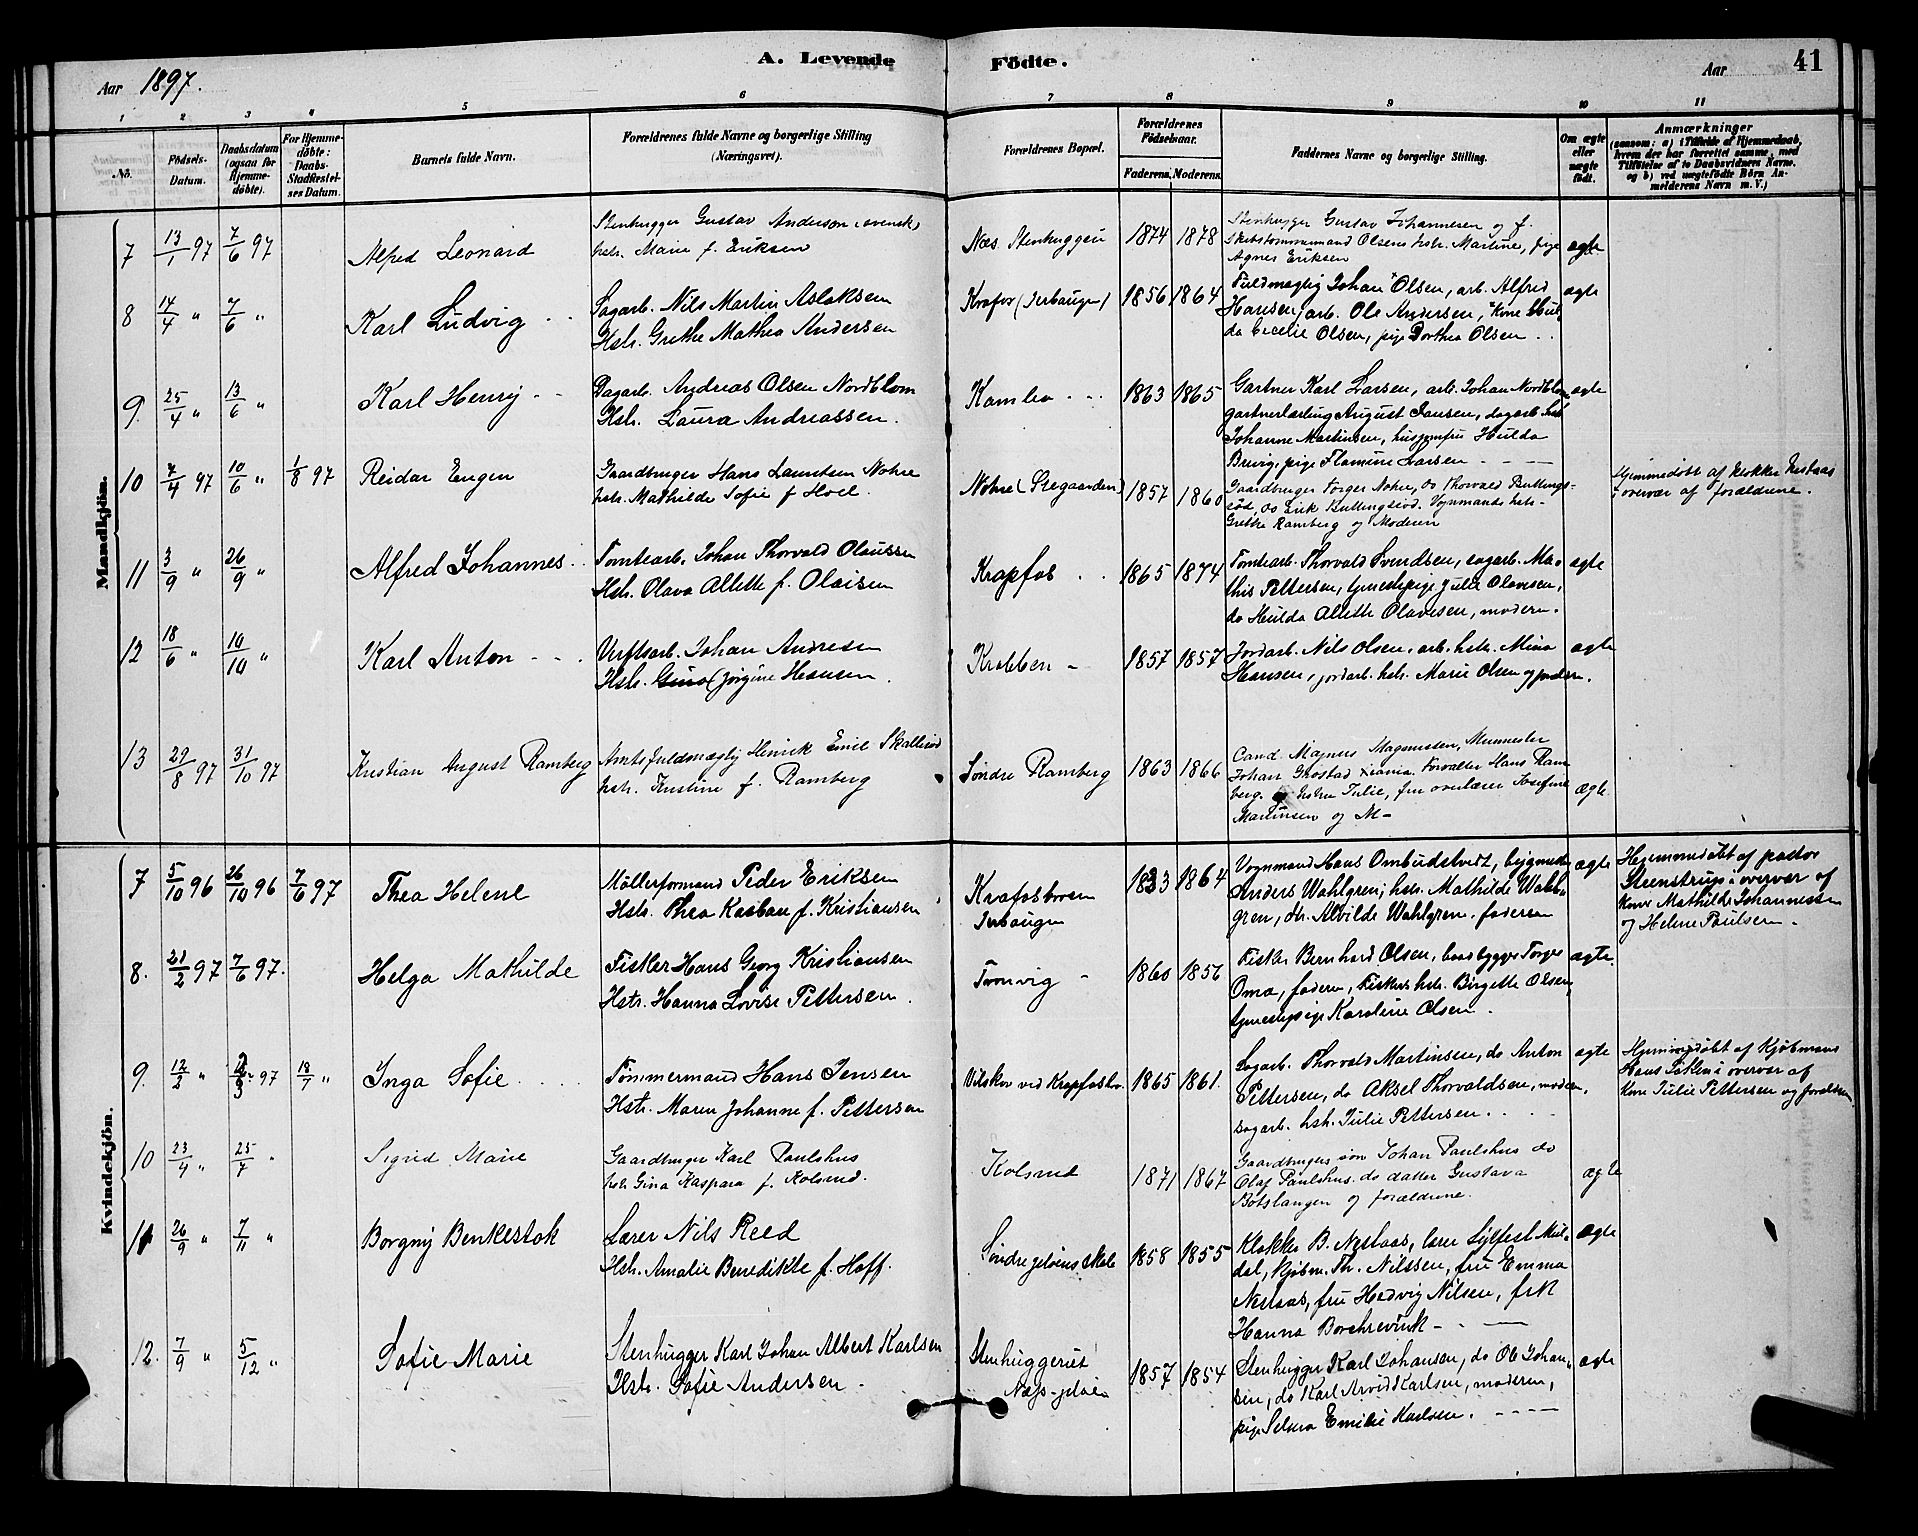 A. Levende Födte.
41
Aar 1897.
Aar
1 2 3 4 5 6 7 8 9 10 11
No.
Födsels-Datum.
Daabsdatum (ogsaa for Hjemme-döbte).
For Hjemme-döbte: Daabs-Stadfæstel-ses Datum.
Barnets fulde Navn.
Forældrenes fulde Navne og borgerlige Stilling (Næringsvei).
Forældrenes Bopæl.
Forældrenes Födselsaar.
Faderens. Moderens.
Faddernes Navne og borgerlige Stilling.
Om ægte eller uægte födt.
Anmærkninger
(saasom: a) i Tilfælde af Hjemmedaab, hvem der har forrettet samme, med Tilföielse af to Daabsvidners Navne. og b) ved uægtefödte Börn An-melderens Navn m. V.)
Mandkjön.
7 13/1 97 7/6 97
Alfred Leonard
Stenhugger Gustav Anderson (svensk)
hstr. Marie f. Eriksen
Næs Stenhuggeri
1874 1878
Stenhugger Gustav Johannesen og f.
Olsens hstr. Martine, pige
Agnes Eriksen
ægte
8 14/4 " 7/6 "
Karl Ludvig
Sagarb. Nils Martin Aslaksen
Hstr. Grethe Mathea Andersen
1856 1864
Fuldmægtig Johan Olsen, arb. Alfred
Hansen, arb. Ole Andersen, Kone Hul-
da Cecelie Olsen, pige Dorthea Olsen
ægte
9. 25/4 " 13/6 "
Karl Henry
Dagarb. Andreas Olsen Nordblom
Hstr. Laura Andreassen.
Kambo
1863 1865
Gartner Karl Larsen, arb. Johan Nordblom
gartnerlærling August Jansen, dagarb. hstr.
Johanne Martinsen, husjomfru Hulda
Brevig, pige Flamine Larsen
ægte
10 7/4 97 10/6 " 1/8 97
Reidar Engen
Gaardbruger Hans Lauritsen Nohre
hstr. Mathilde Sofie f Hoel.
1857 1860
Gaardbruger Torger Nohre, do Thorvald Bullings-
röd, do Erik Bullingsröd. Vognmands hstr.
Grethe Ramberg og Moderen
Hjemmedöbt af klokker Nestaas
i overvær af forældrene.
11 3/9 " 26/9 "
Alfred Johannes
Tomtearb. Johan Thorvald Olaussen
Hstr. Olava Allette f. Olaisen
Krapfos
1865 1874
Tomtearb. Thorvald Svendsen, sagarb. Ma-
this Pettersen, tjenestepige Julie Olavesen,
do Hulda Allette Olavesen, modern.
ægte
12 18/6 " 10/10 "
Karl Anton
Verftsarb. Johan Andresen
Hstr. Gina (Jörgine Hansen.
Krabben
1857 1857
Jordarb. Nils Olsen, arb. hstr. Mina
Hansen, jordarb. hstr. Marie Olsen og faderen.
ægte
13 29/8 97 31/10 97
Kristian August Ramberg
Amtsfuldmægtig Henrik Emil Skalleröd
hstr. Kristine f. Ramberg
Söndre Ramberg
1863 1866
Cand. Magnus Magnussen, Murmester
Johan Grostad Xiania. Forvalter Hans Ram
berg. hstru Julie, fru overlærer Josefine
Martinsen og M-
ægte
Kvindekjön.
7 5/10 96 26/10 96 7/6 97
Thea Helene
Möllerformand Peder Eriksen
Hstr. Thea Kaspara f. Kristiansen
1833 1864
Vognmand Hans Ombudstvedt, bygmester
Anders Wahlgren, hstr. Mathilde Wahl-
gren, do. Alvilde Wahlgren. faderen
ægte
Hjemmedöbt af pastor
Steenstrup i overvær af
Kone Mathilde Johannessen
og Helene Paulsen.
8. 21/2 97 7/6 97.
Helga Mathilde
Fisker Hans Georg Kristiansen
Hstr. Hanna Lovise Pettersen.
Tronvig
1860 1856
Fisker Bernhard Olsen, baadbygger Torger
Oma, faderen, Fiskers hstr. Birgette Olsen,
tjenestepige Karoline Olsen.
ægte.
9. 12/2 " 97 18/7 "
Inga Sofie
Tömmermand Hans Jensen
Hstr. Maren Johanne f. Pettersen
1865 1861.
Sagarb. Thorvald Martinsen, do Anton
Pettersen, do Aksel Thorvaldsen, modern,
sagarb. hstr. Julie Pettersen.
ægte
Hjemmedöbt af Kjöbmand
Hans i overvær af
Kone Julie Pettersen og forældrene
10 23/4 " 25/7 "
Sigrid Marie
Gaardbruger Karl Paulshus
hstr. Gina Kaspara f. Kolsrud.
Kolsrud
1871 1867
Gaardbrugers sön Johan Paulshus do
Olaf Paulshus. do datter Gustava
Botslangen og forældrene.
ægte
11 26/9 " 7/11 "
Borgny Benkestok
Lærer Nils Reed
Hstr. Amalie Benedikte f. Hoff.
Söndre Jelöens skole
1858 1855
Klokker B. Nestaas, lærer Sylfest Mul-
dal, Kjöbm. Th. Nilssen, fru Emma
Nestaas, fru Hedvig Nilsen, frk
Hanna Borchrevink
ægte
12. 7/9 " 5/12 "
Sofie Marie
Stenhugger Karl Johan Albert Karlsen
Hstr. Sofie Andersen.
Stenhuggeriet
Næss-jelöen
1857 1854
Stenhugger Karl Johansen, do Ole Johan-
sen, do Karl Arvid Karlsen, moderen,
pige Selma Emilie Karlsen.
ægte